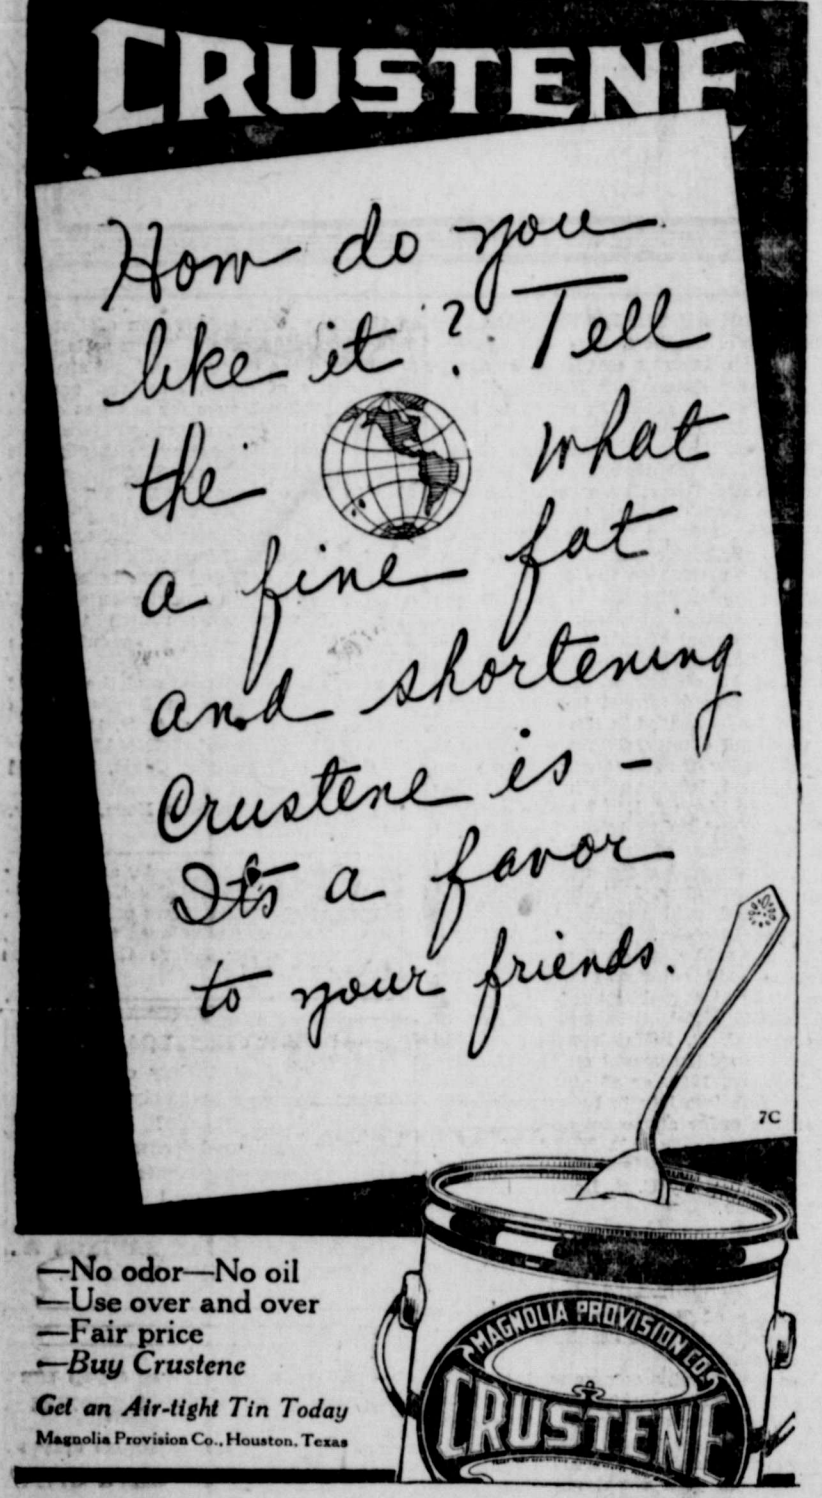 CRUSTENE
How do you
like it? Tell
the what
a fine fat
and shortening
Crustene is -
It's a favor
to your friends.
7C
—No odor—No oil
—Use over and over
—Fair price
—Buy Crustene
Get an Air-tight Tin Today
Magnolia Provision Co., Houston, Texas
MAGNOLIA PROVISION CO.
CRUSTENE